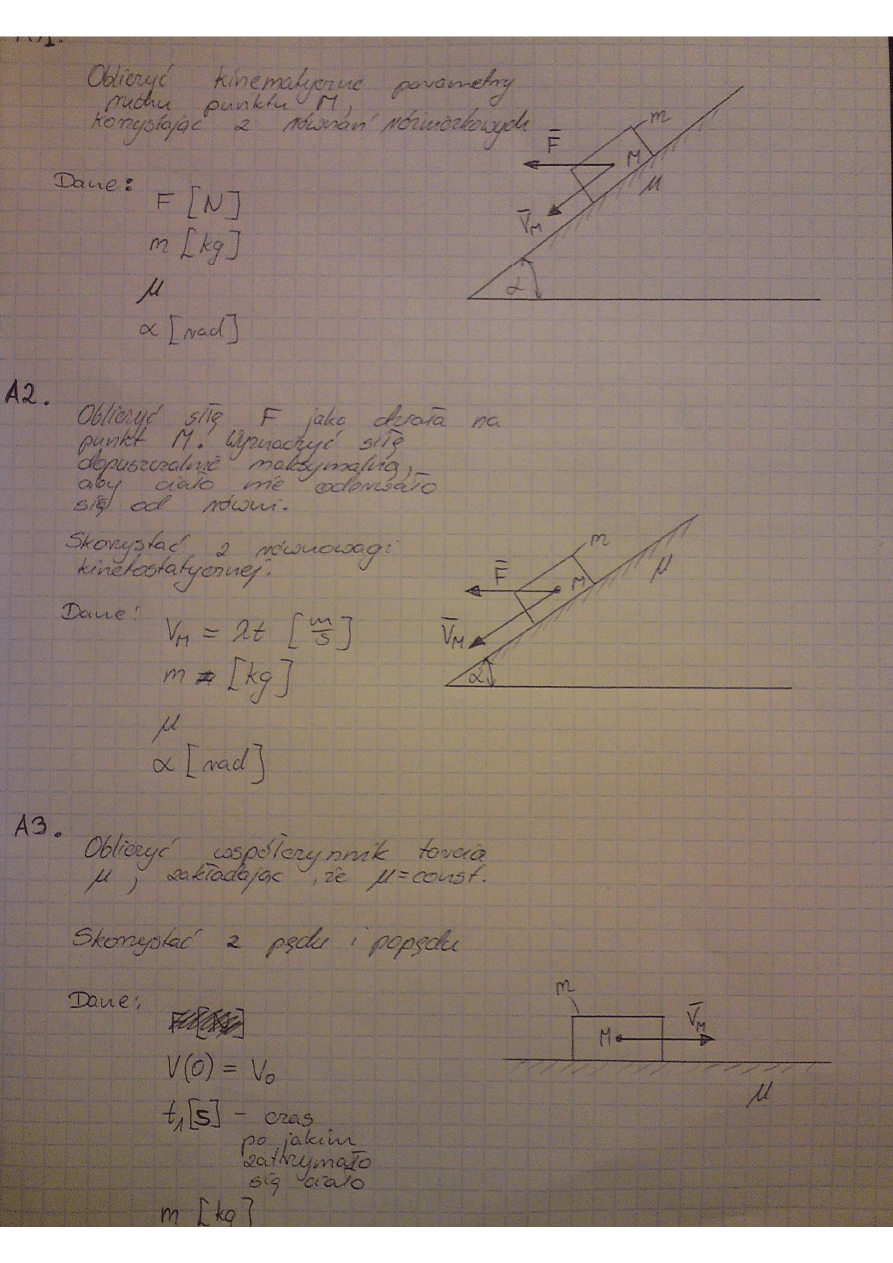 Obliczyć kinematyczne parametry
ruchu punktu M,
korzystając z równań różniczkowych
Dane:
F [N]
m [kg]
μ
α [rad]
F̄
m
M
μ
V̄M
α
A2.
Obliczyć siłę F jako działa na
punkt M. Wyznaczyć siłę
dopuszczalnie maksymalną,
aby ciało nie oderwało
się od równi.
Skorzystać z równowagi
kinetostatycznej.
Dane:
VM = λt [m/s]
m [kg]
μ
α [rad]
m
F̄
M
μ
V̄M
α
A3.
Obliczyć współczynnik tarcia
μ, zakładając, że μ=const.
Skorzystać z pędu i popędu
Dane:
V(0) = V0
t1[s] - czas
po jakim
zatrzymało
się ciało
m [kg]
m
M
V̄M
μ